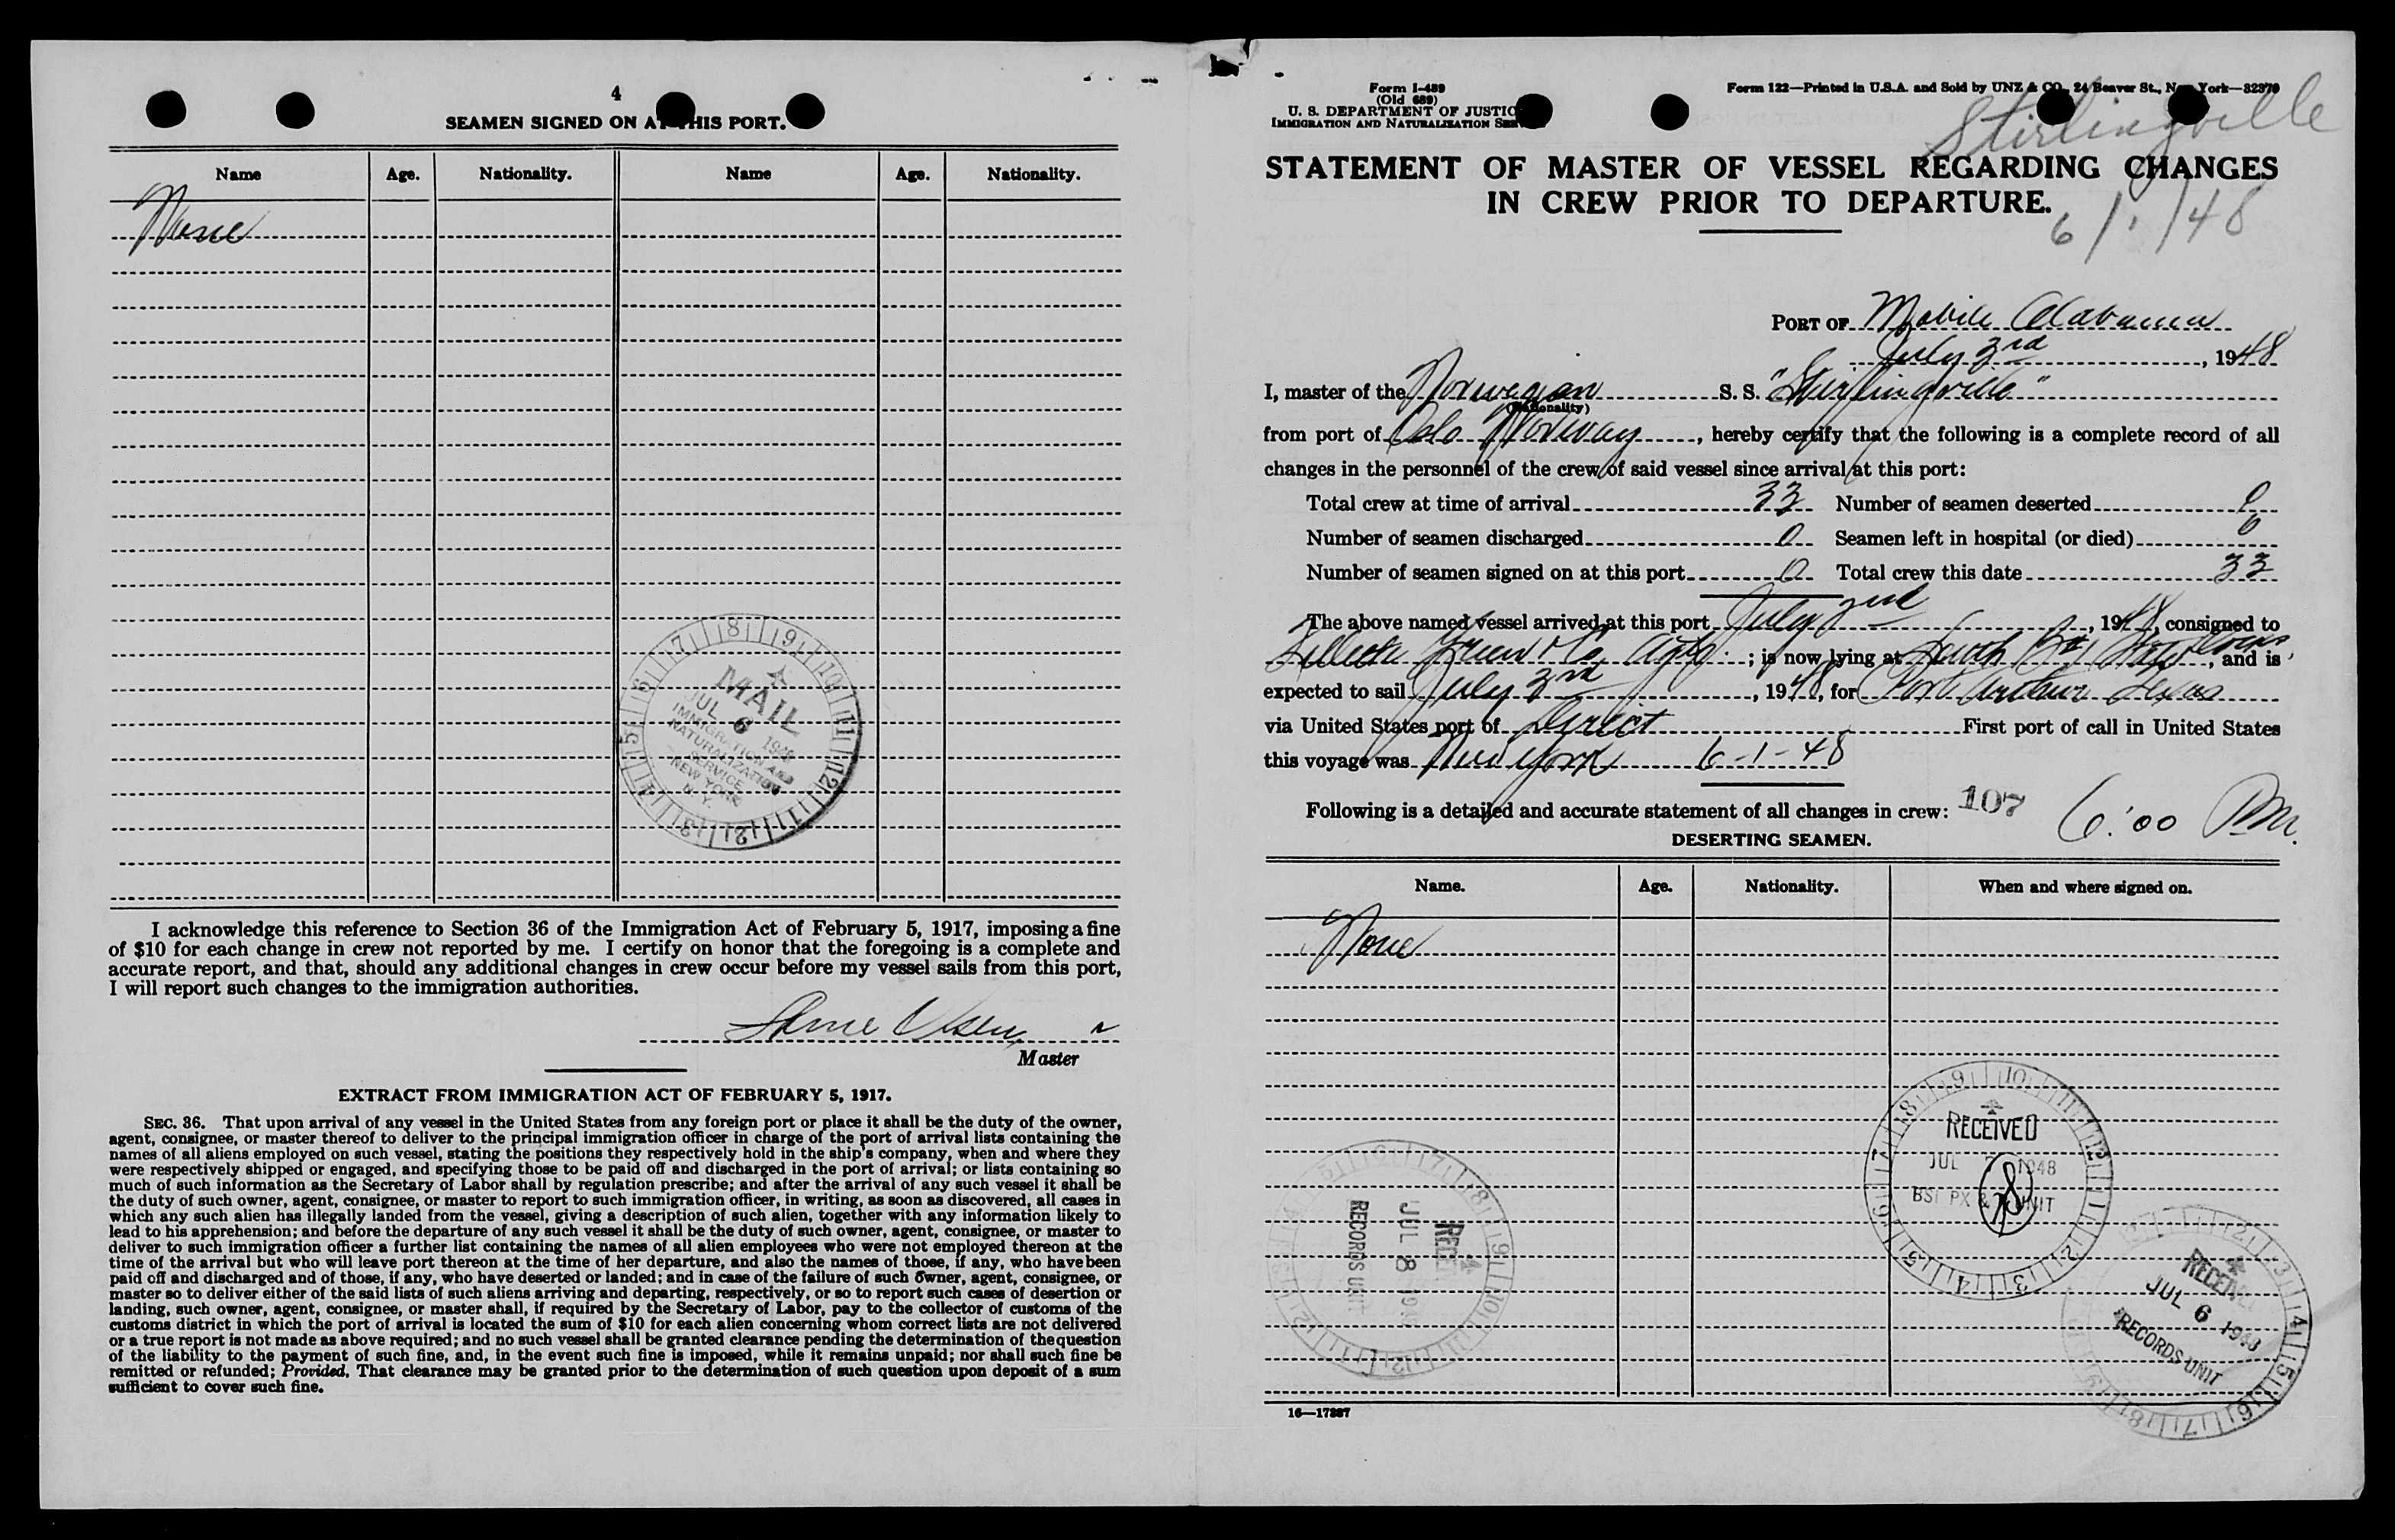 4
SEAMEN SIGNED ON AT THIS PORT.
Name Age. Nationality. Name Age. Nationality.
None
MAIL
JUL 6 1948
IMMIGRATION AND
NATURALIZATION
SERVICE
NEW YORK
N. Y.
I acknowledge this reference to Section 36 of the Immigration Act of February 5, 1917, imposing a fine
of $10 for each change in crew not reported by me. I certify on honor that the foregoing is a complete and
accurate report, and that, should any additional changes in crew occur before my vessel sails from this port,
I will report such changes to the immigration authorities.
Olsen
Master
EXTRACT FROM IMMIGRATION ACT OF FEBRUARY 5, 1917.
SEC. 36. That upon arrival of any vessel in the United States from any foreign port or place it shall be the duty of the owner,
agent, consignee, or master thereof to deliver to the principal immigration officer in charge of the port of arrival lists containing the
names of all aliens employed on such vessel, stating the positions they respectively hold in the ship's company, when and where they
were respectively shipped or engaged, and specifying those to be paid off and discharged in the port of arrival; or lists containing so
much of such information as the Secretary of Labor shall by regulation prescribe; and after the arrival of any such vessel it shall be
the duty of such owner, agent, consignee, or master to report to such immigration officer, in writing, as soon as discovered, all cases in
which any such alien has illegally landed from the vessel, giving a description of such alien, together with any information likely to
lead to his apprehension; and before the departure of any such vessel it shall be the duty of such owner, agent, consignee, or master to
deliver to such immigration officer a further list containing the names of all alien employees who were not employed thereon at the
time of the arrival but who will leave port thereon at the time of her departure, and also the names of those, if any, who have been
paid off and discharged and of those, if any, who have deserted or landed; and in case of the failure of such owner, agent, consignee, or
master so to deliver either of the said lists of such aliens arriving and departing, respectively, or so to report such cases of desertion or
landing, such owner, agent, consignee, or master shall, if required by the Secretary of Labor, pay to the collector of customs of the
customs district in which the port of arrival is located the sum of $10 for each alien concerning whom correct lists are not delivered
or a true report is not made as above required; and no such vessel shall be granted clearance pending the determination of the question
of the liability to the payment of such fine, and, in the event such fine is imposed, while it remains unpaid; nor shall such fine be
remitted or refunded; Provided, That clearance may be granted prior to the determination of such question upon deposit of a sum
sufficient to cover such fine.
Form I-489
(Old 689)
U. S. DEPARTMENT OF JUSTIC
IMMIGRATION AND NATURALIZATION SER
Form 122—Printed in U.S.A. and Sold by UNZ & CO., 24 Beaver St., New York—82370
Stirlingville
STATEMENT OF MASTER OF VESSEL REGARDING CHANGES
IN CREW PRIOR TO DEPARTURE.
6/1/48
PORT OF Mobile Alabama
July 3rd, 1948
I, master of the Norwegian S. S. "Stirlingville"
(Nationality)
from port of Oslo Norway, hereby certify that the following is a complete record of all
changes in the personnel of the crew of said vessel since arrival at this port:
Total crew at time of arrival 33 Number of seamen deserted 0
Number of seamen discharged 0 Seamen left in hospital (or died) 0
Number of seamen signed on at this port 0 Total crew this date 33
The above named vessel arrived at this port July 2nd, 1948, consigned to
Fillette Green & Co, Agts.; is now lying at Docks, and is
expected to sail July 3rd, 1948, for Port Arthur Texas
via United States port of Direct First port of call in United States
this voyage was New York 6-1-48
Following is a detailed and accurate statement of all changes in crew: 107 6:00 PM.
DESERTING SEAMEN.
Name. Age. Nationality. When and where signed on.
None
RECEIVED
JUL 1948
BSI PX & UNIT
JUL 8
RECORDS UNIT
RECEIVED
JUL 6 1948
RECORDS UNIT
16—17387